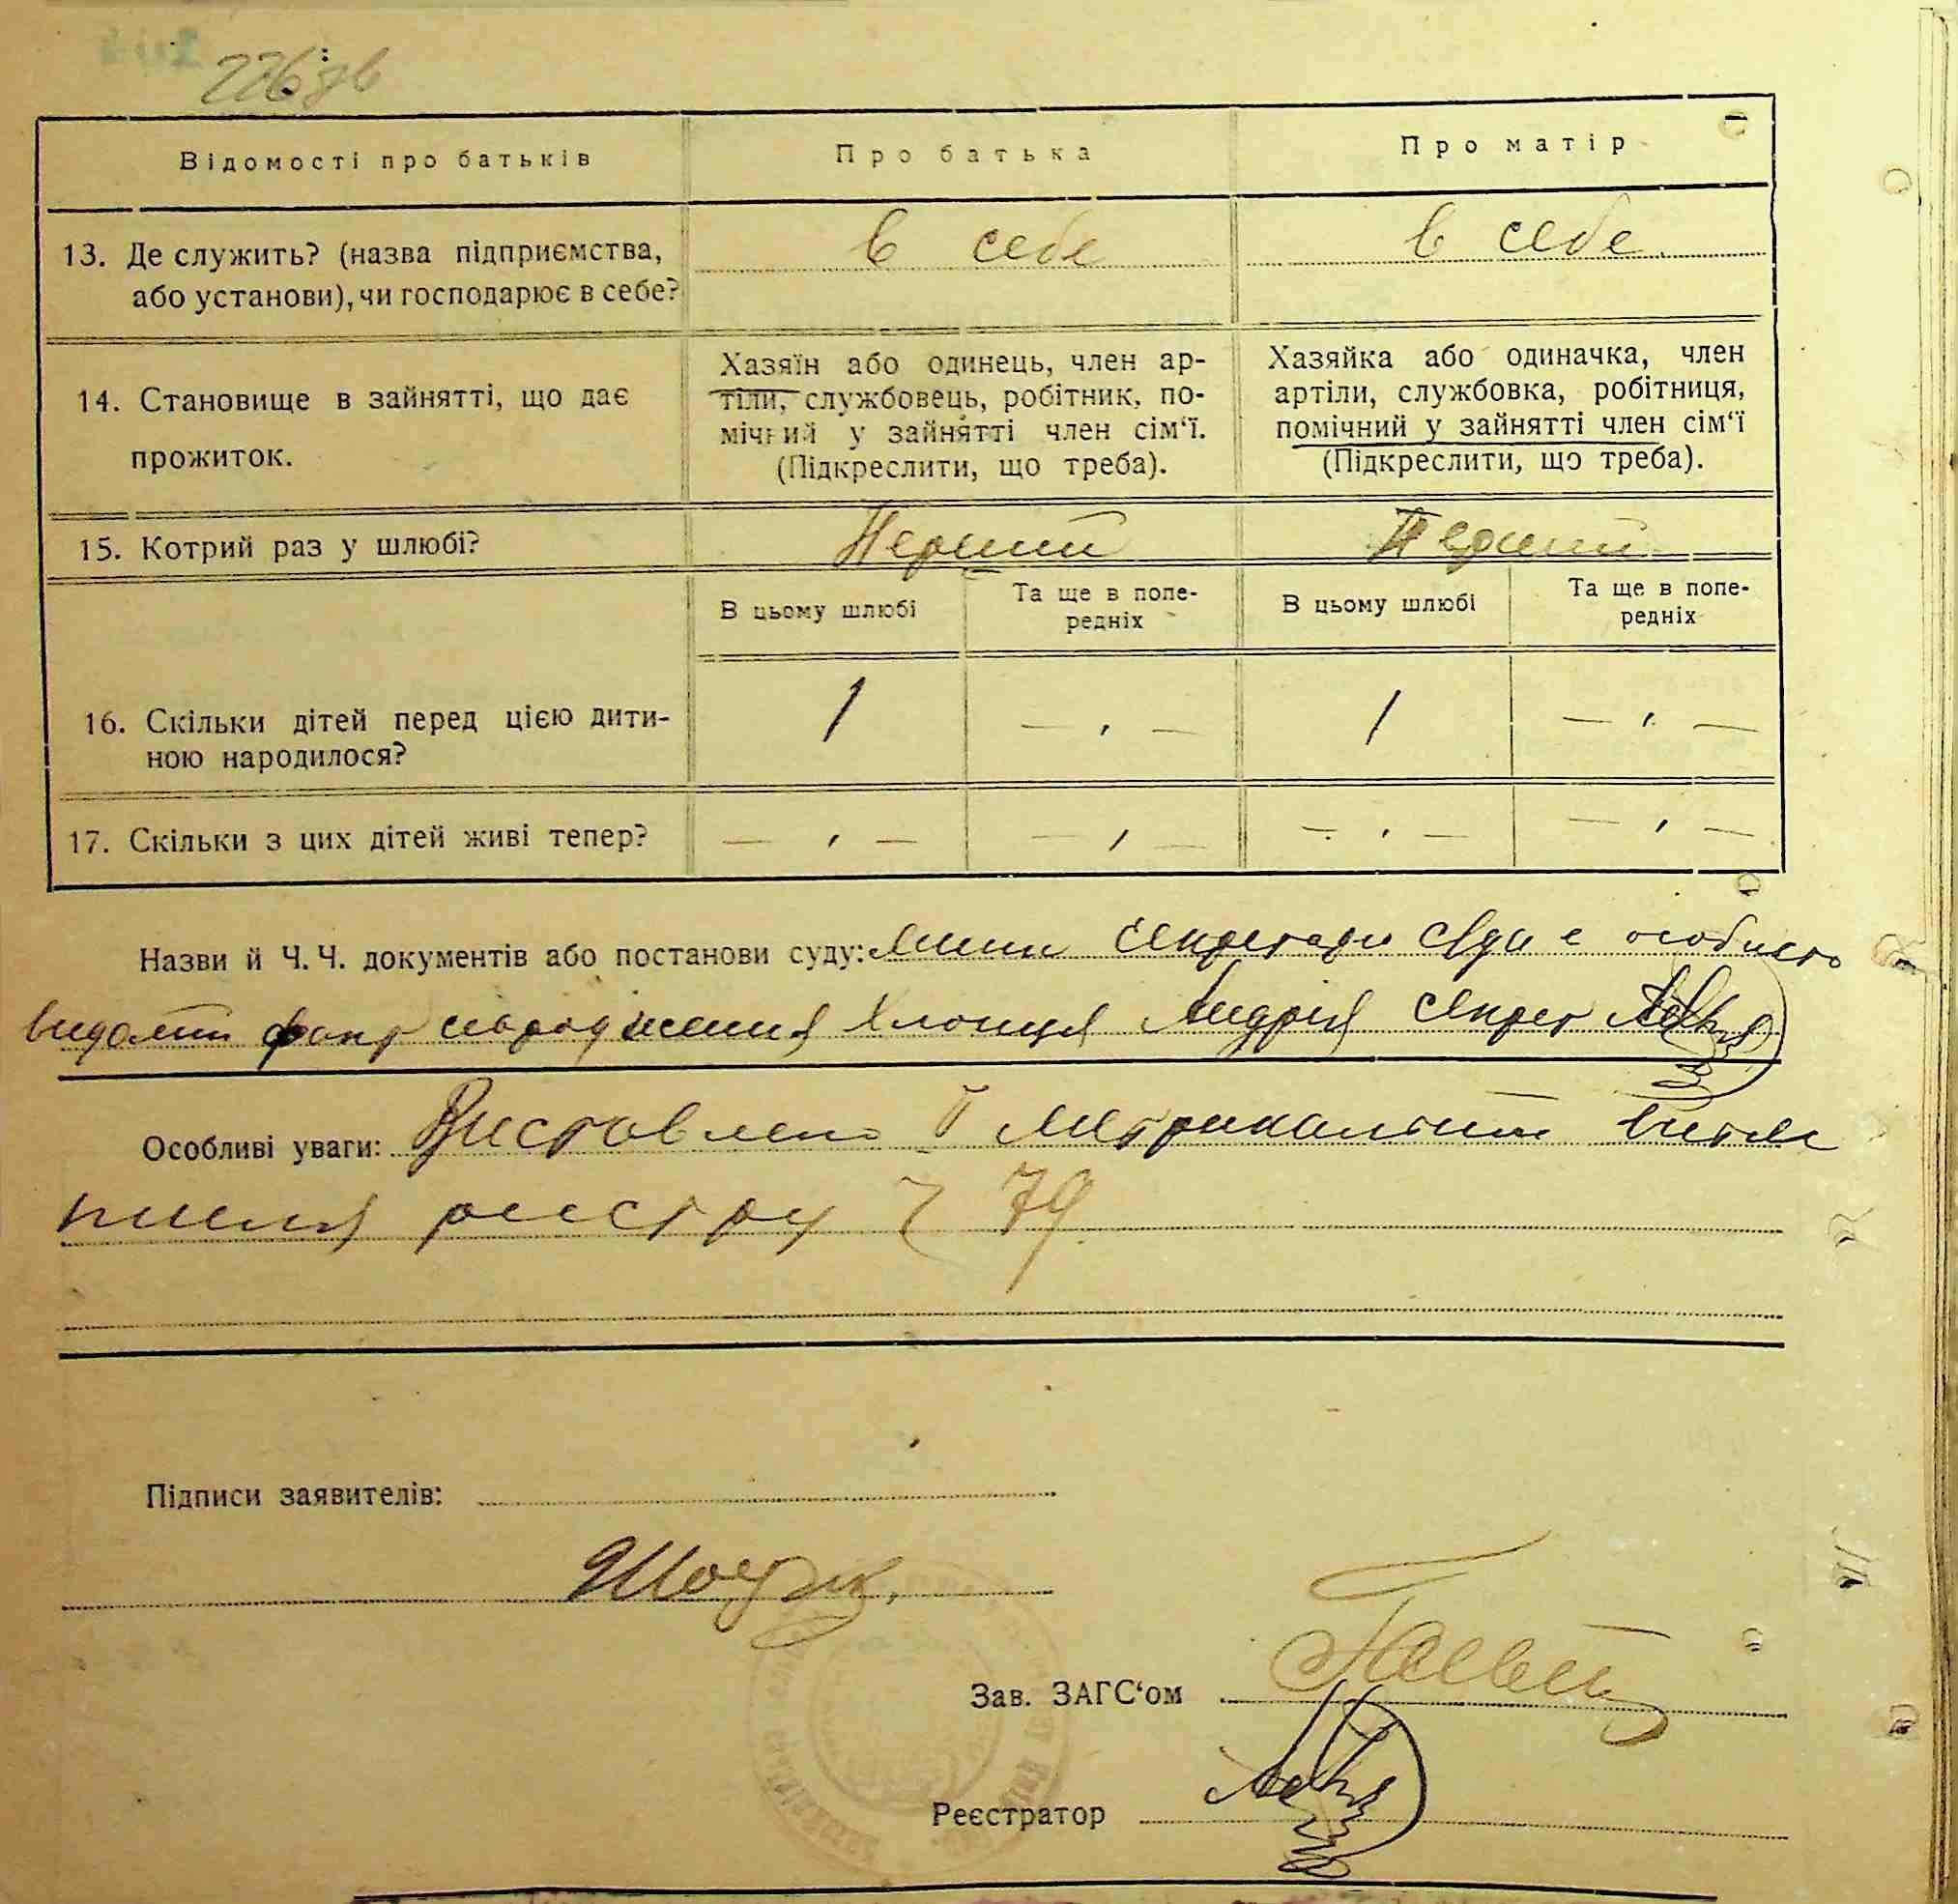 226 зв
Відомості про батьків
Про батька
Про матір
13. Де служить? (назва підприємства,
або установи), чи господарює в себе?
в себе
в себе
14. Становище в зайнятті, що дає
прожиток.
Хазяїн або одинець, член ар-
тіли, службовець, робітник, по-
мічний у зайнятті член сім‘ї.
(Підкреслити, що треба).
Хазяйка або одиначка, член
артіли, службовка, робітниця,
помічний у зайнятті член сім‘ї
(Підкреслити, що треба).
15. Котрий раз у шлюбі?
Перший
Перший
В цьому шлюбі
Та ще в попе-
редніх
В цьому шлюбі
Та ще в попе-
редніх
16. Скільки дітей перед цією дити-
ною народилося?
1
— , —
1
— , —
17. Скільки з цих дітей живі тепер?
— , —
— , —
— , —
— , —
Назви й Ч. Ч. документів або постанови суду: особисто
факт народження хлопця Андрія секрет
Особливі уваги: Виставлено
реєстру ч 79
Підписи заявителів:
Зав. ЗАГС‘ом
Реєстратор